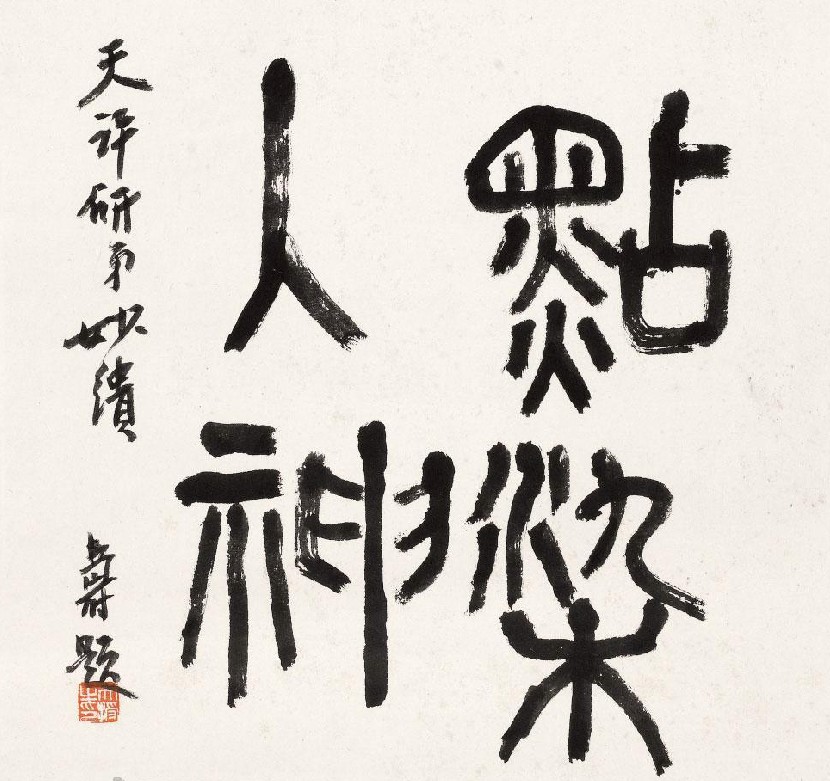 點染
人神
天許研弟妙繢
壽題